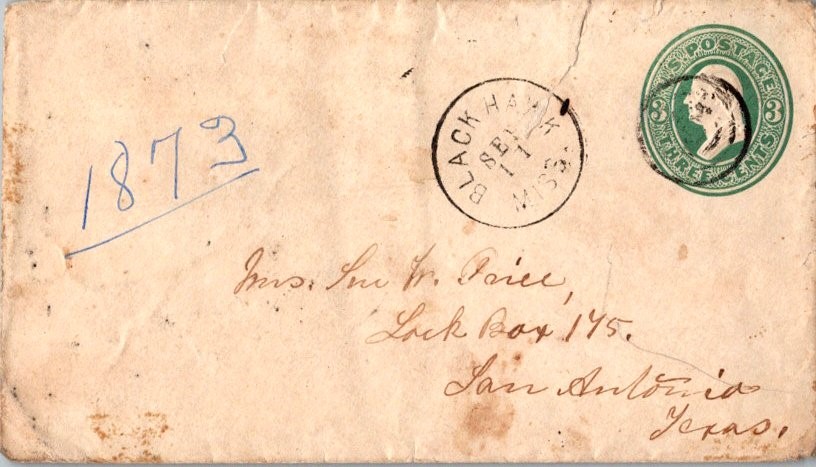 U.S. POSTAGE
3 3
THREE CENTS
BLACK HAWK
SEP
11
MISS.
1873
Mrs. Sue W. Price,
Lock Box 175.
San Antonio
Texas.